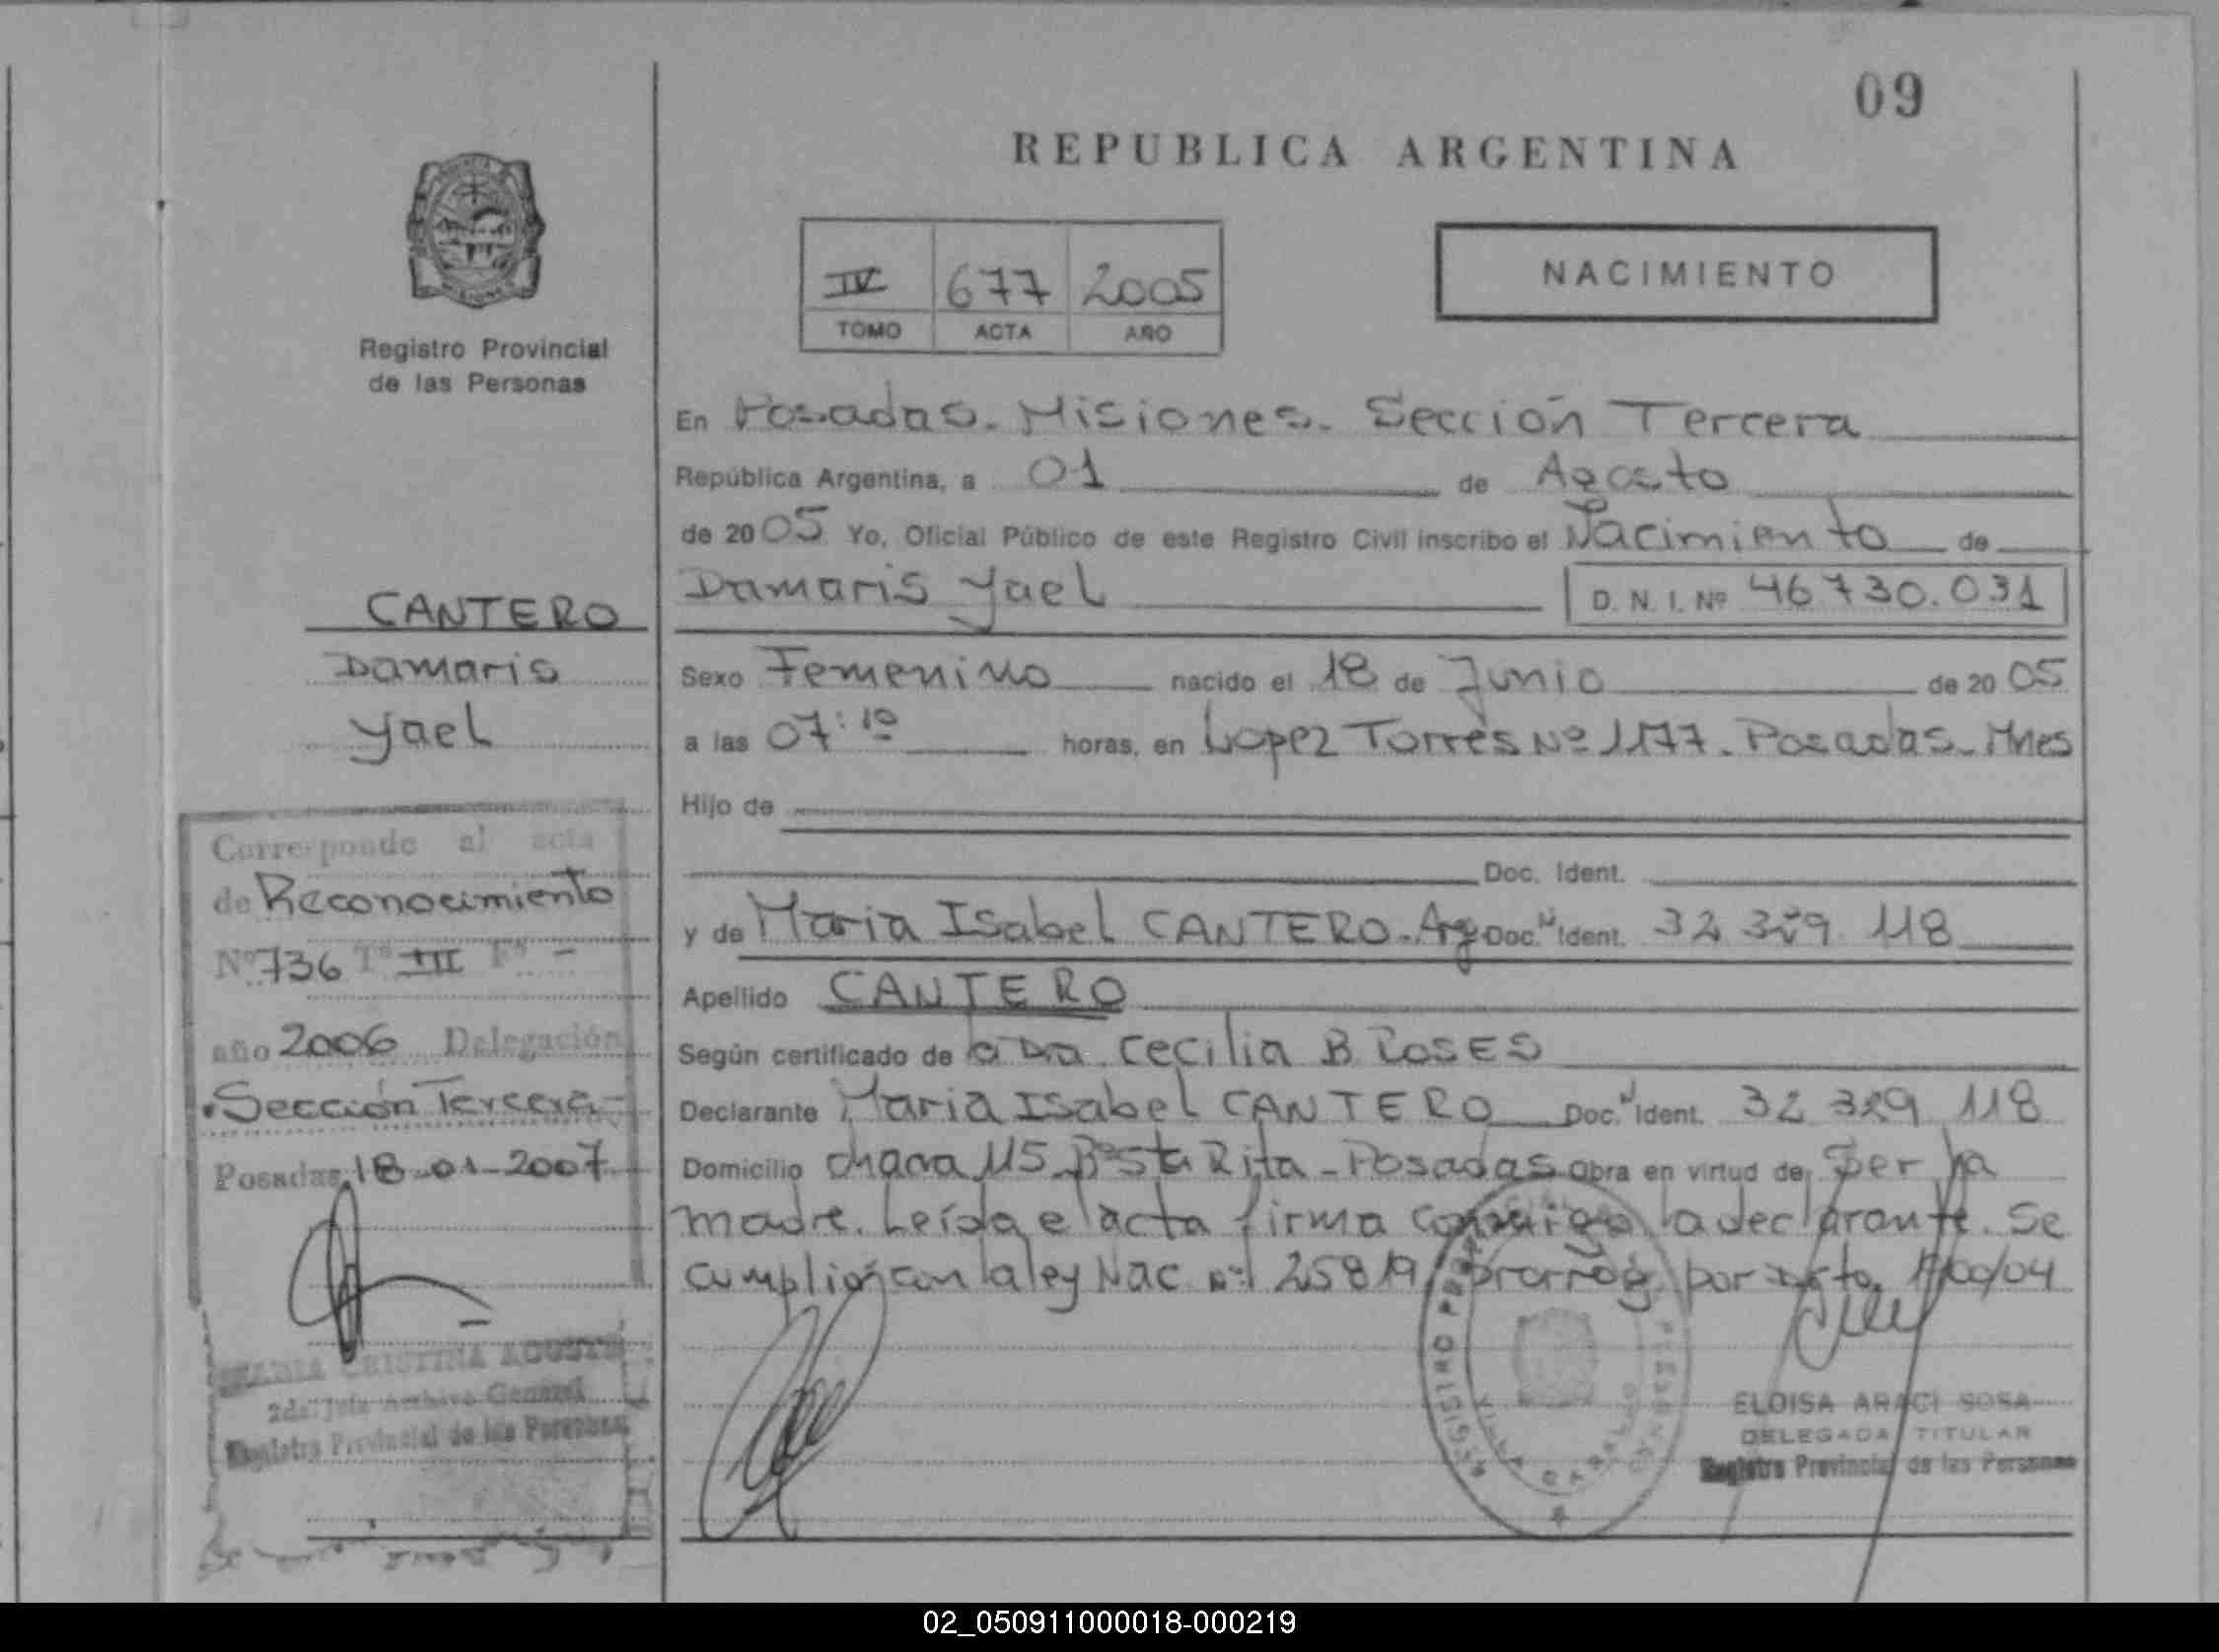 09
REPUBLICA ARGENTINA
NACIMIENTO
IV 677 2005
TOMO ACTA AÑO
Registro Provincial
de las Personas
En Posadas. Misiones. Sección Tercera
República Argentina, a 01 de Agosto
de 2005 Yo, Oficial Público de este Registro Civil inscribo el Nacimiento de
Damaris Yael D. N. I. Nº 46730.031
Sexo Femenino nacido el 18 de Junio de 2005
a las 07:10 horas, en Lopez Torres Nº 1177. Posadas. Mnes
Hijo de
Doc. Ident.
y de Maria Isabel CANTERO. Arg Doc. N Ident. 32 329 118
Apellido CANTERO
Según certificado de la Dra. Cecilia B
Declarante Maria Isabel CANTERO Doc. N Ident. 32 329 118
Domicilio chacra 115 Bº Sta Rita - Posadas obra en virtud de Ser la
madre. Leída el acta firma conmigo la declarante. Se
cumplió con la ley Nac nº 25819 prorrog. por 1700/04
ELOISA ARACI SOSA
DELEGADA TITULAR
Registro Provincial de las Personas
CANTERO
Damaris
Yael
Corresponde al acta
de Reconocimiento
Nº 736 Tº III Fº -
año 2006 Delegación
Sección Tercera
Posadas, 18-01-2007
MARIA CRISTINA
2da. Jefa Archivo General
Registro Provincial de las Personas
02_050911000018-000219